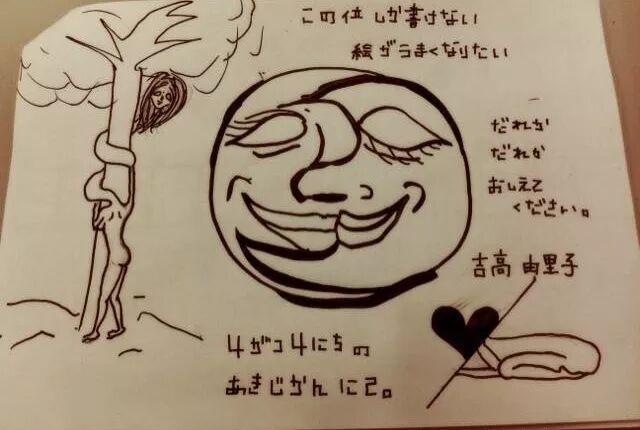 この位しか書けない
絵がうまくなりたい
だれか
だれか
おしえて
ください。
吉高 由里子
4がつ4にちの
あきじかんにて。